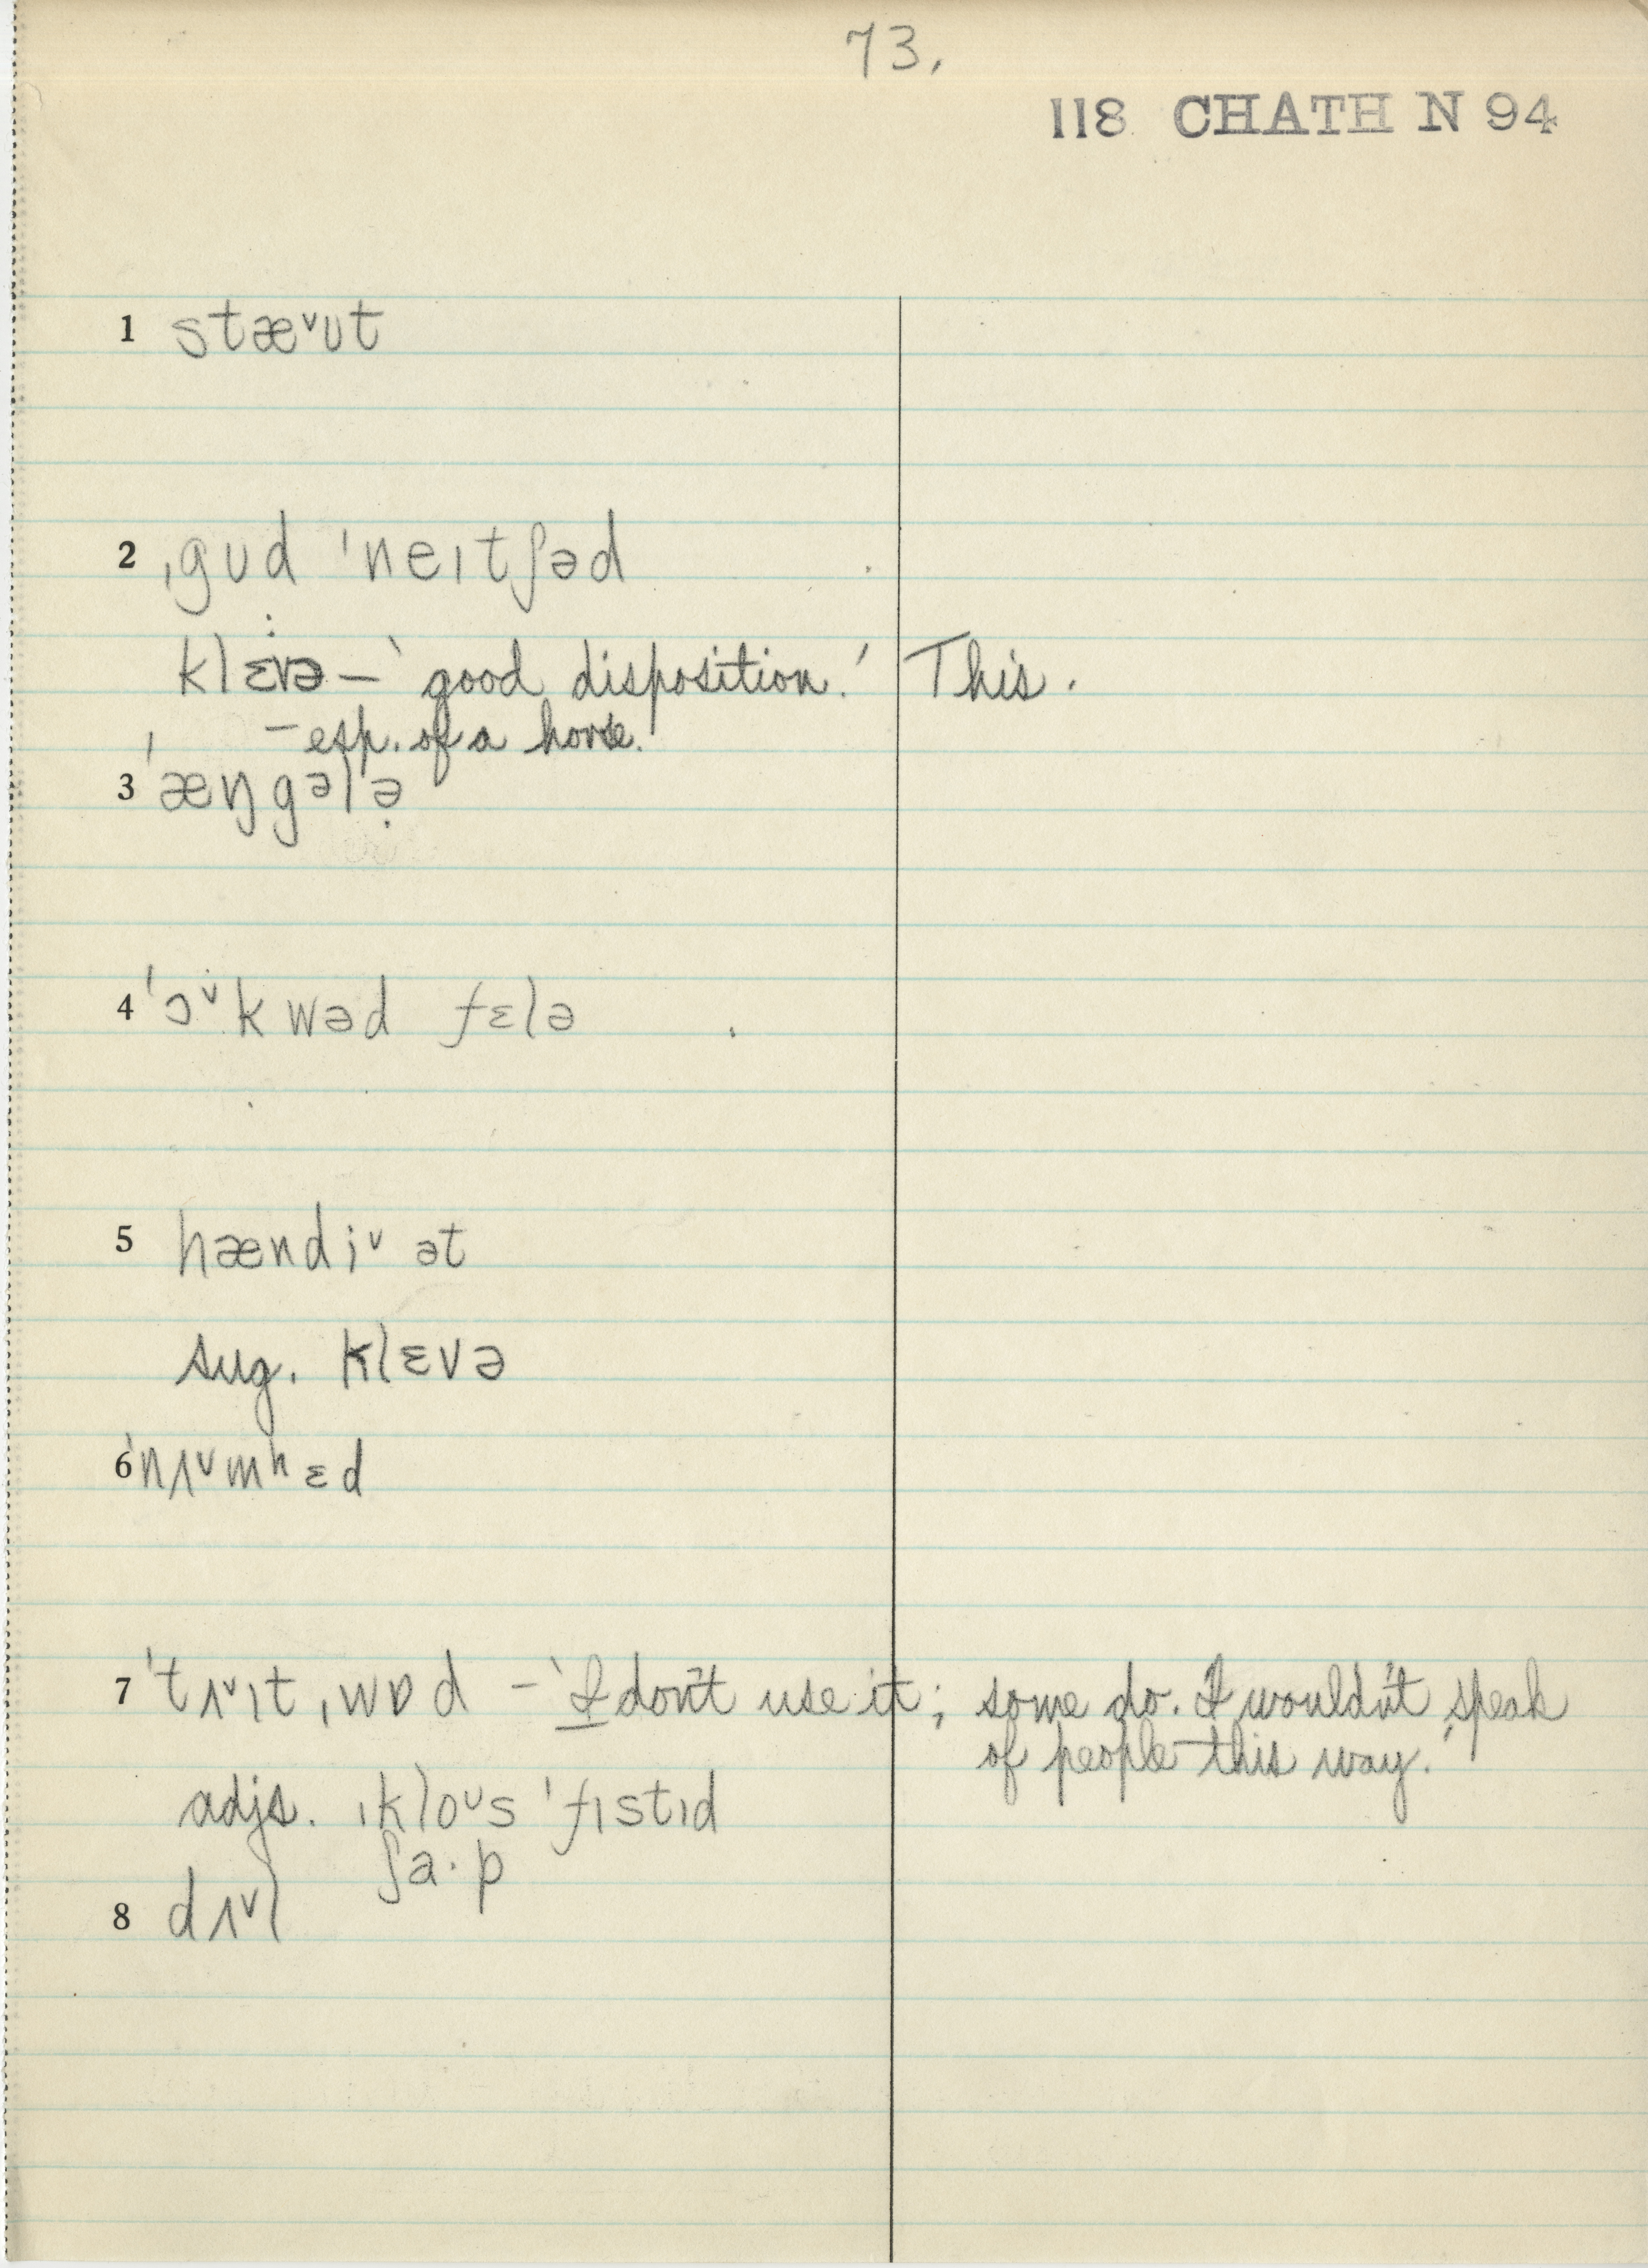 73.
118 CHATH N 94
1 stæ˅ʊt
2 ˌgʊd ˈneɪtʃəd
klɛvə – ‘good disposition.’ This.
– esp. of a horse.
3 ˈæŋgᵊlə̣
4 ˈɔ˅kwəd fɛlə
5 hændi˅ ət
sug. klɛvə
6 ˈnʌ˅mʰɛd
7 ˈtʌ˅ɪt ˌwɒd – ‘I don't use it; some do. I wouldn't speak
of people this way.’
adjs. ˌkloᶸs ˈfɪstɪd
ʃa·p
8 dʌ˅l